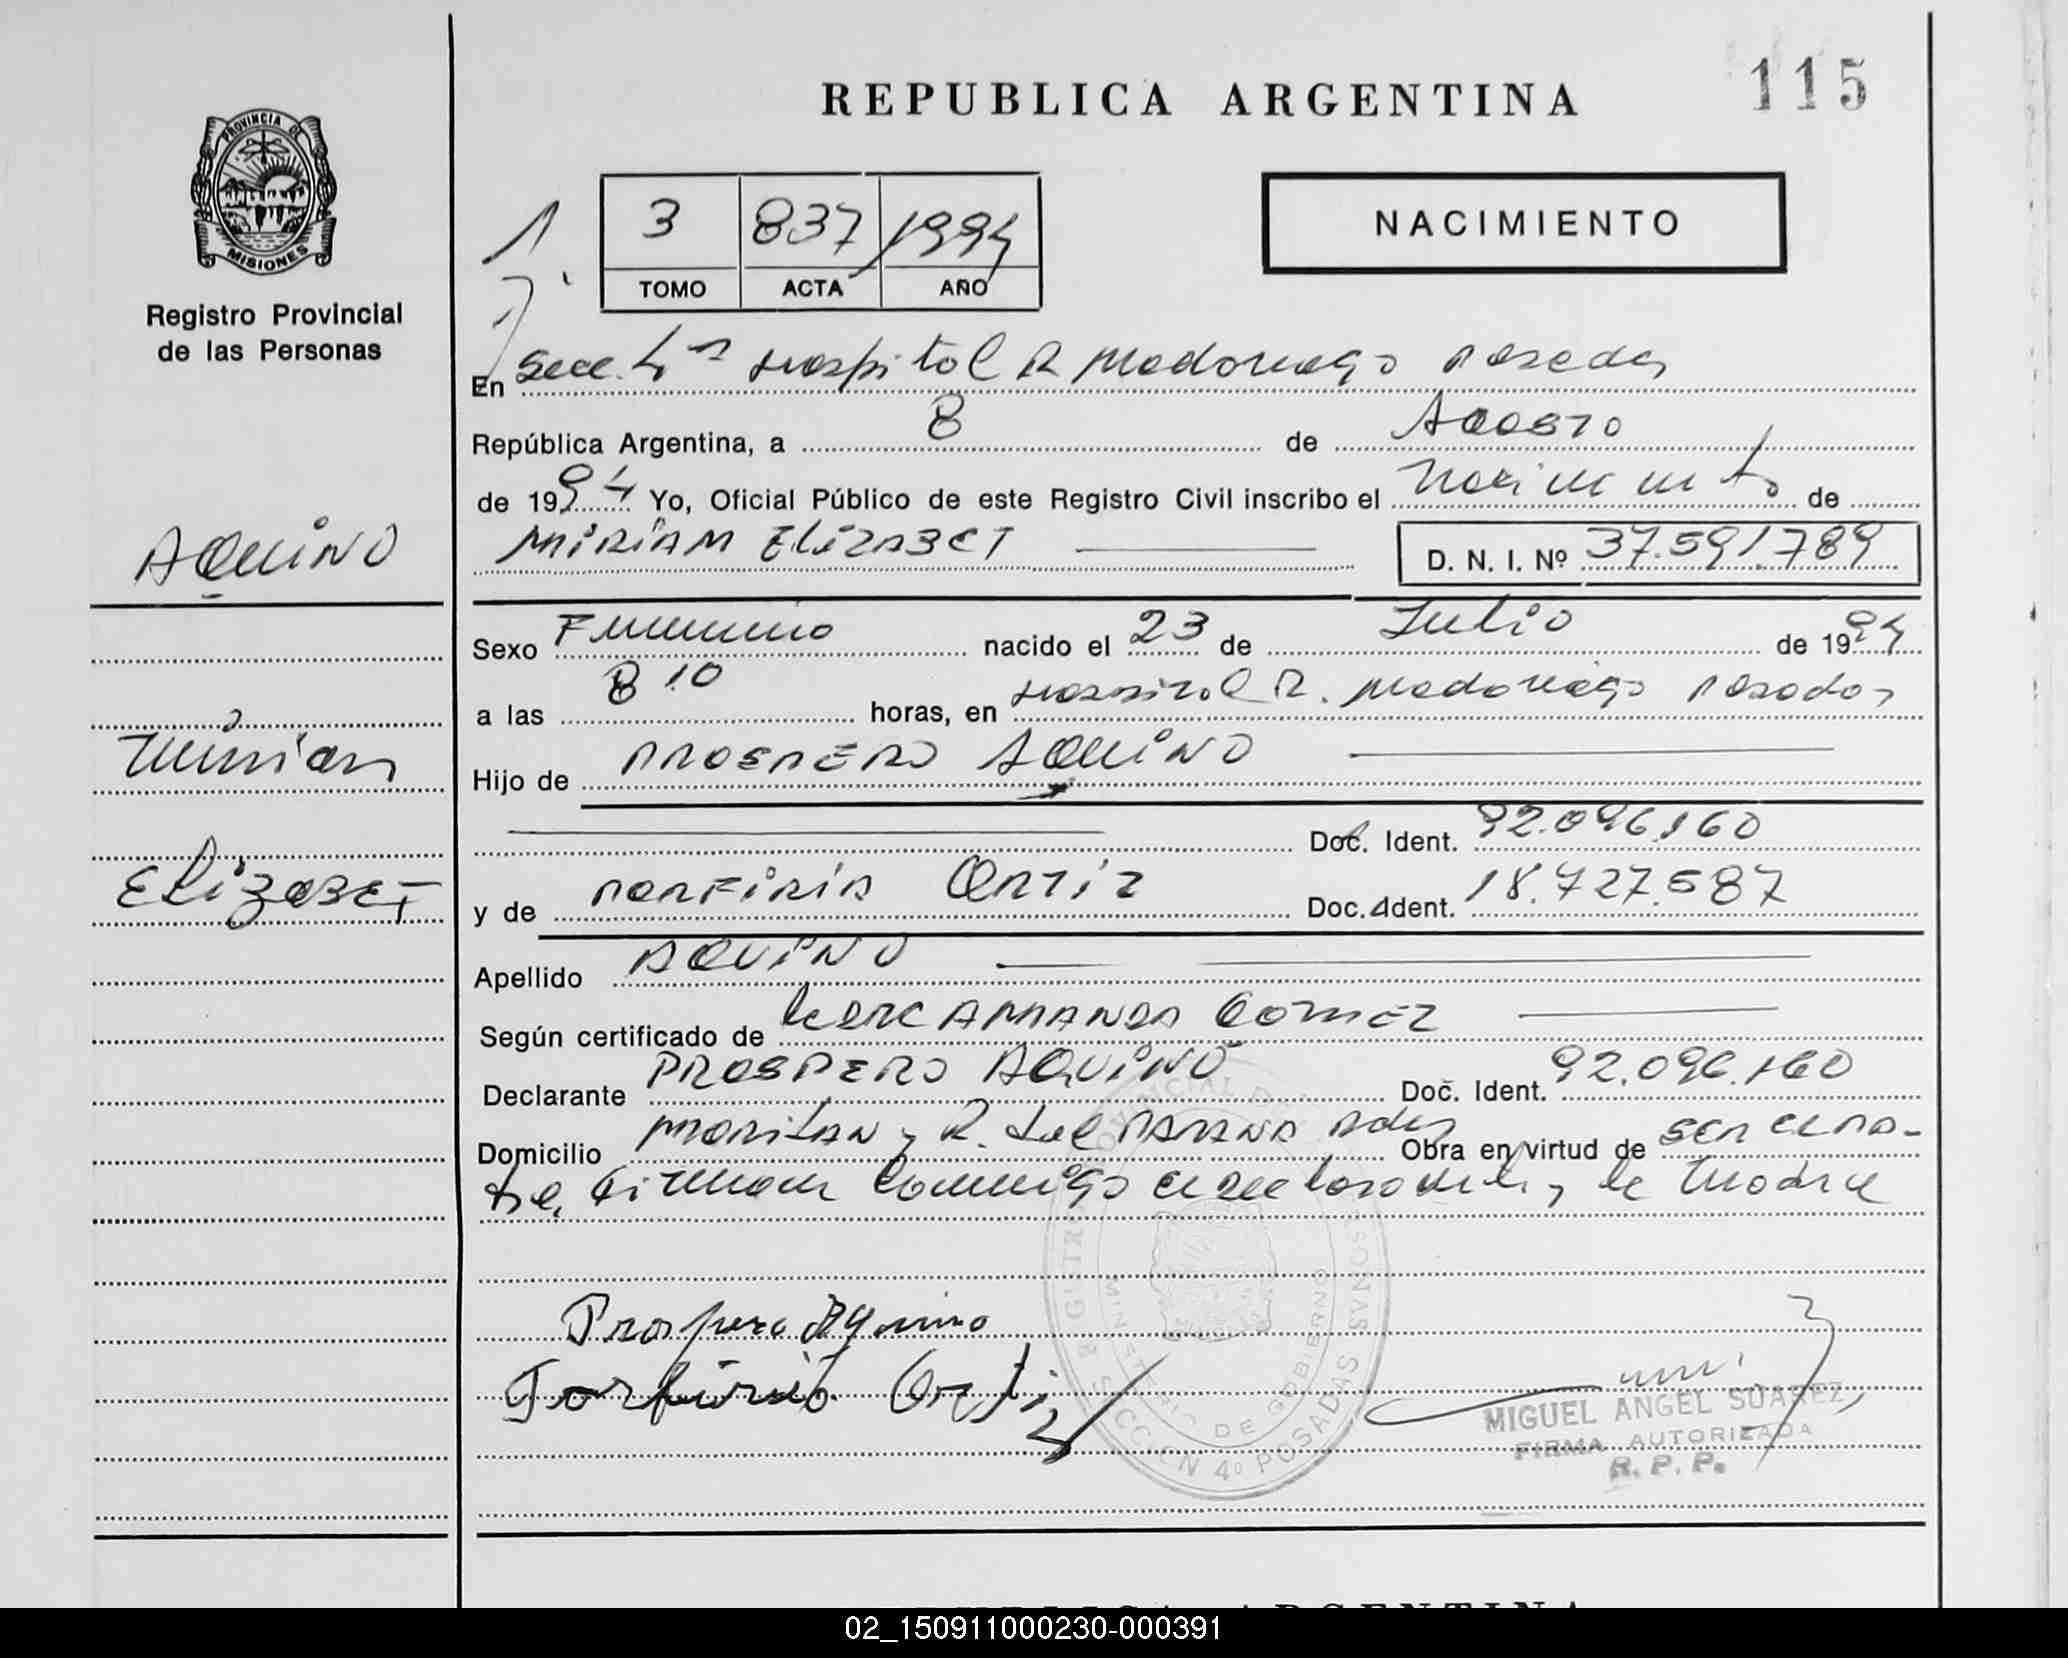 115
REPUBLICA ARGENTINA
PROVINCIA DE
MISIONES
Registro Provincial
de las Personas
NACIMIENTO
1
3 837 1994
TOMO ACTA AÑO
En Secc. 4ta Hospital R Madariaga Posadas
República Argentina, a 8 de Agosto
de 1994 Yo, Oficial Público de este Registro Civil inscribo el Nacimiento de
MIRIAM ELIZABET D. N. I. Nº 37.591.789
AQUINO
Sexo Femenino nacido el 23 de Julio de 1994
a las 8 10 horas, en Hospital R. Madariaga Posadas
Miriam
Hijo de PROSPERO AQUINO
Doc. Ident. 92.096.160
ELIZABET
y de PORFIRIA ORTIZ Doc. Ident. 18.727.587
Apellido AQUINO
Según certificado de AMANDA GOMEZ
Declarante PROSPERO AQUINO Doc. Ident. 92.096.160
Domicilio y R. del PARANA Pdas Obra en virtud de ser el pa-
dre, Firman conmigo el declarante y la Madre
Prospero Aquino
Porfiria Ortiz
REGISTRO PROVINCIAL DE LAS PERSONAS
MINISTERIO DE GOBIERNO
SECCION 4º POSADAS
MIGUEL ANGEL SUAREZ
FIRMA AUTORIZADA
R. P. P.
REPUBLICA ARGENTINA
02_150911000230-000391